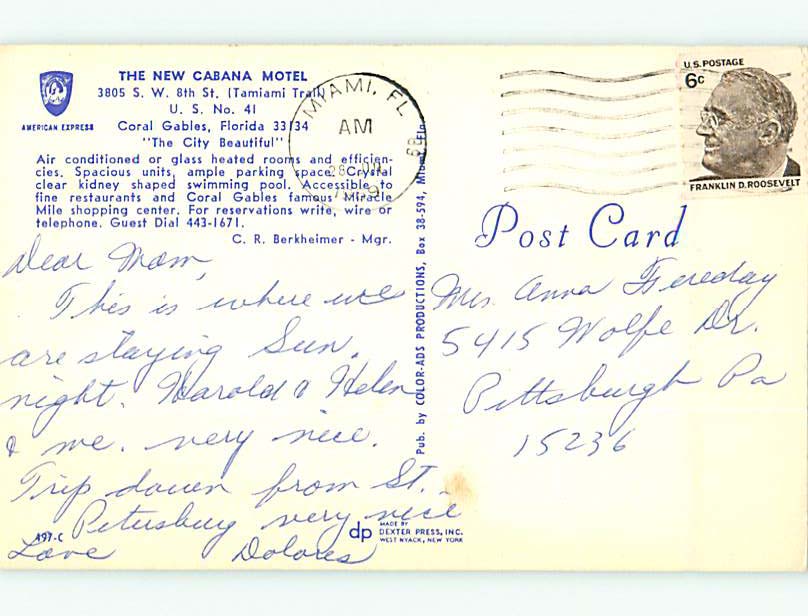 THE NEW CABANA MOTEL
3805 S. W. 8th St. (Tamiami Trail)
U. S. No. 41
AMERICAN EXPRESS
Coral Gables, Florida 33134
"The City Beautiful"
Air conditioned or glass heated rooms and efficien-
cies. Spacious units, ample parking space. Crystal
clear kidney shaped swimming pool. Accessible to
fine restaurants and Coral Gables famous Miracle
Mile shopping center. For reservations write, wire or
telephone. Guest Dial 443-1671.
C. R. Berkheimer - Mgr.
Dear Mom,
This is where we
are staying Sun.
night. Harold & Helen
& me. very nice.
Trip down from St.
Petersburg very nice
Love Dolores
497-C
MIAMI, FL
AM
28
Pub. by COLOR-ADS PRODUCTIONS, Box 38-594, Miami, Fla.
dp MADE BY
DEXTER PRESS, INC.
WEST NYACK, NEW YORK
U.S. POSTAGE
6c
FRANKLIN D. ROOSEVELT
Post Card
Mrs. Anna Fereday
5415 Wolfe Dr.
Pittsburgh Pa
15236